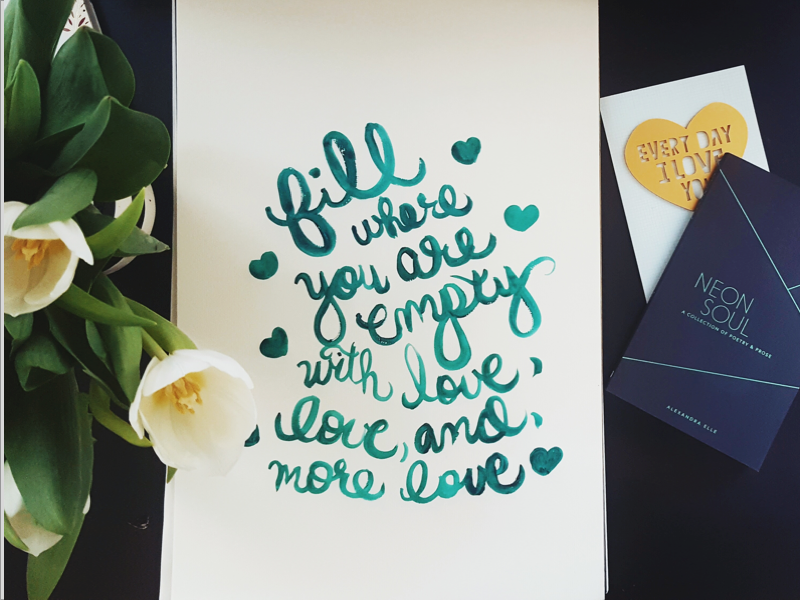 fill
where
you are
empty
with love,
love, and,
more love
EVERY DAY
I LOVE
YOU
NEON
SOUL
A COLLECTION OF POETRY & PROSE
ALEXANDRA ELLE